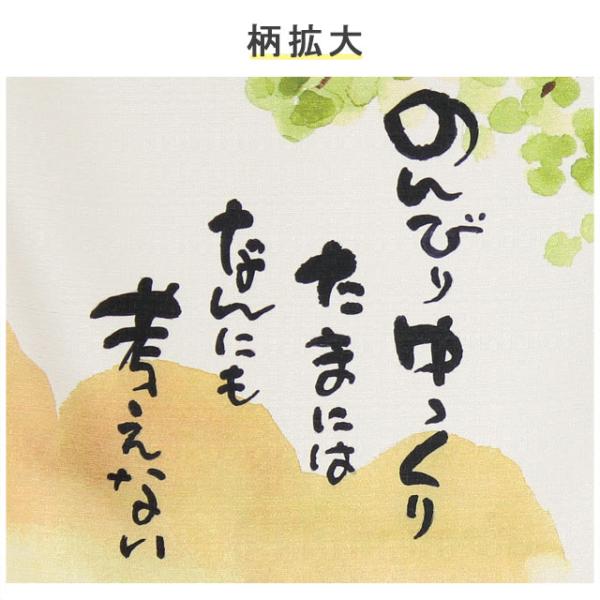 柄拡大
のんびりゆっくり
たまには
なんにも
考えない